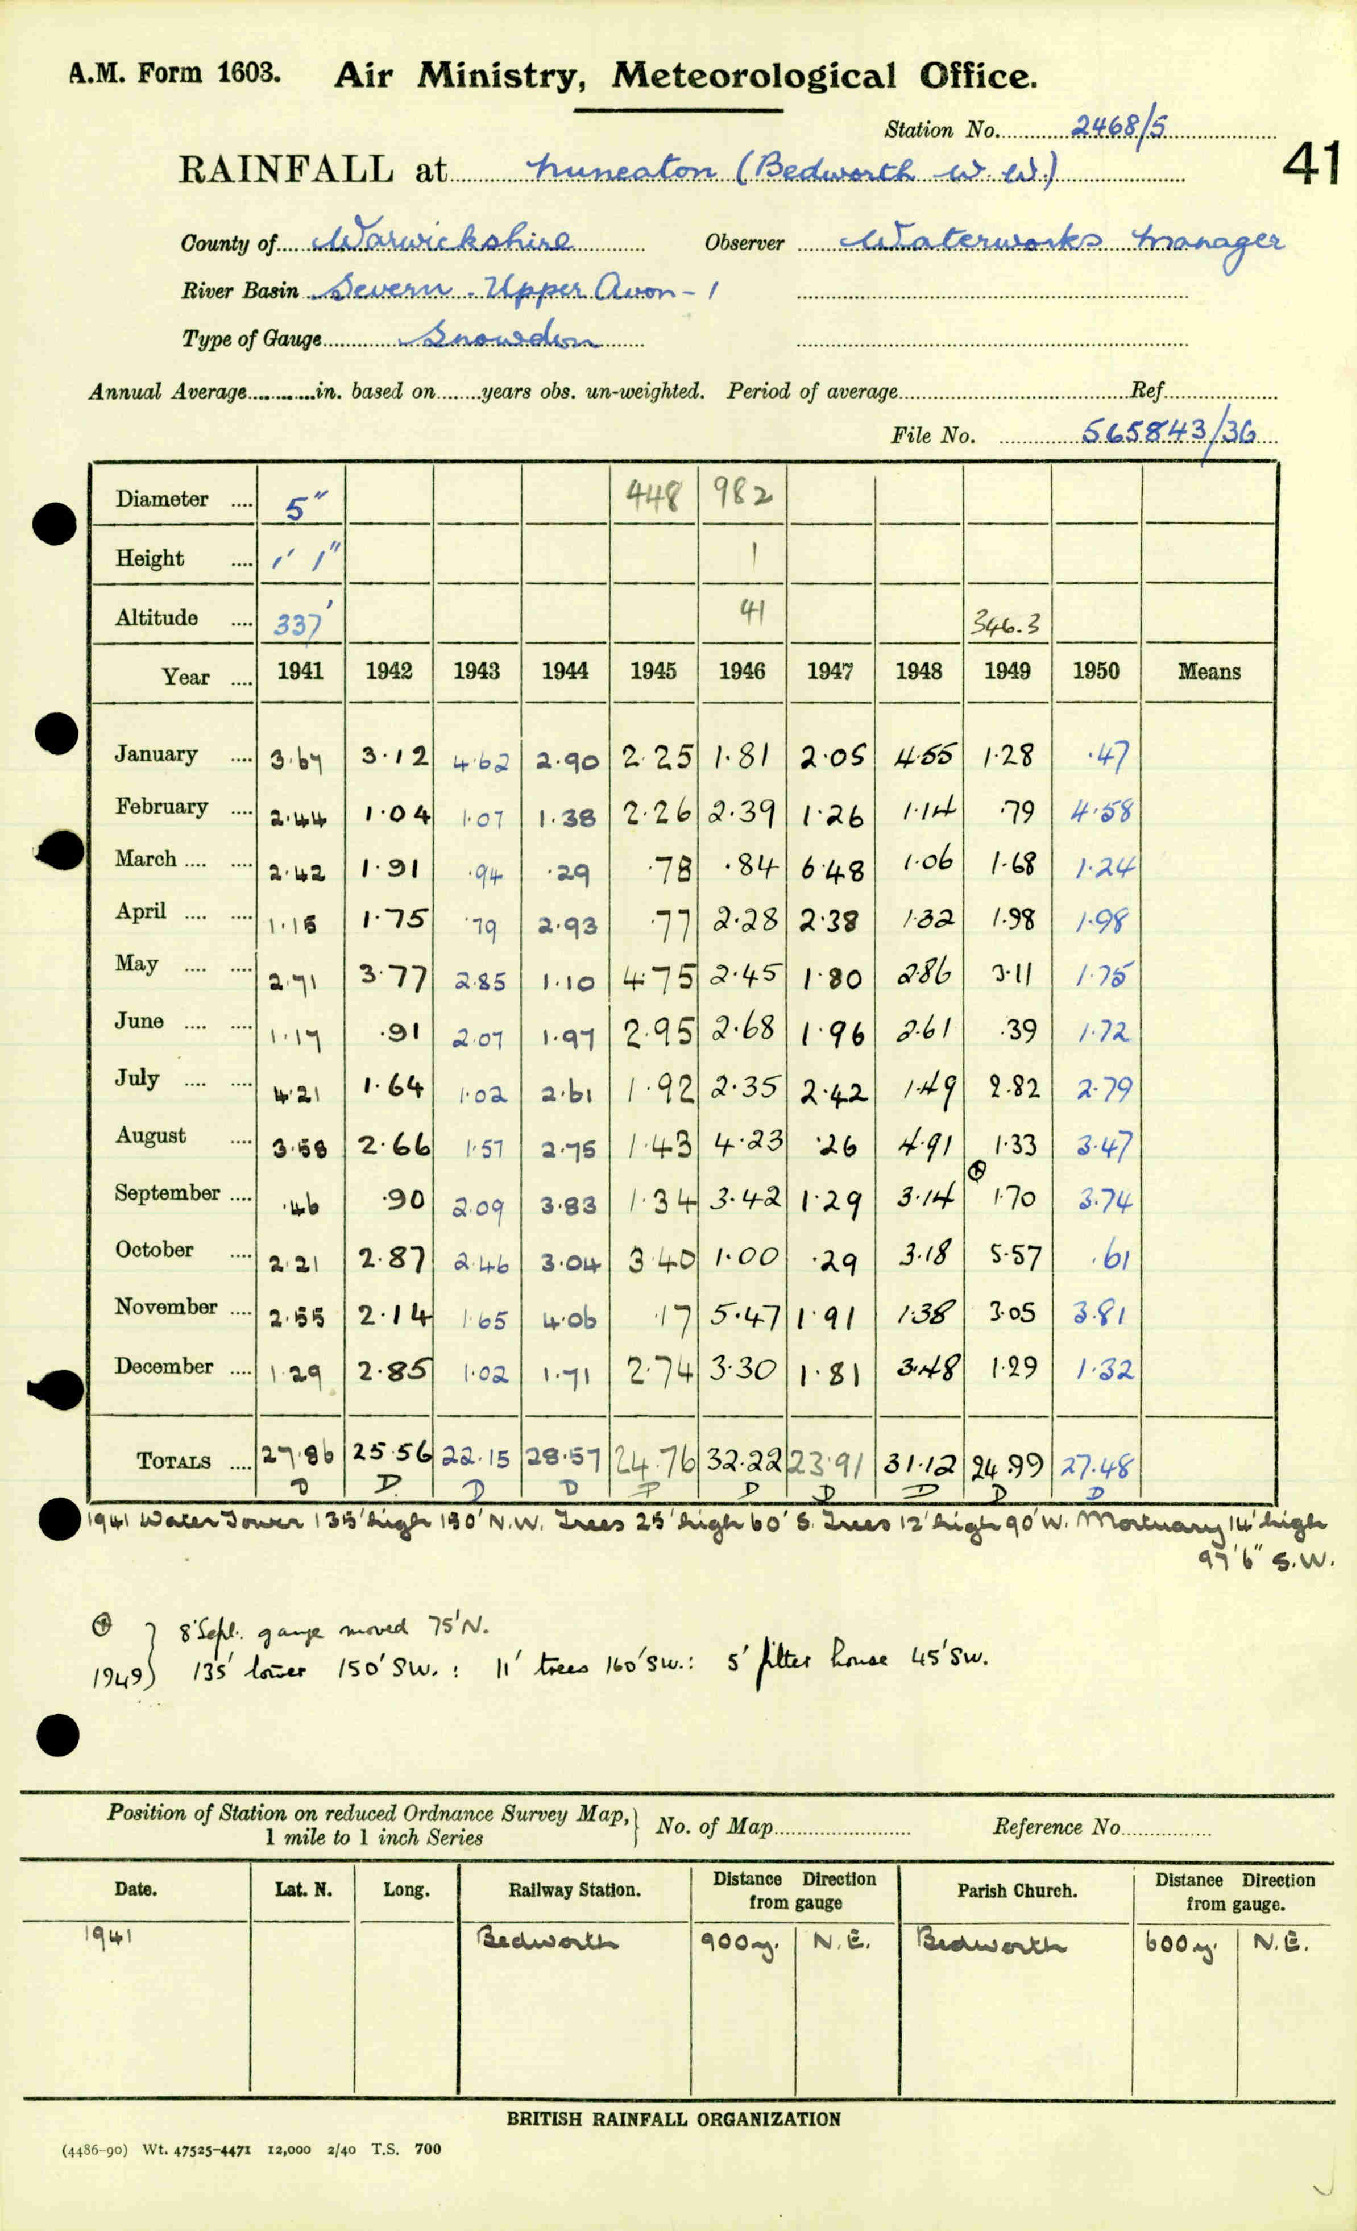 A.M. Form 1603. Air Ministry, Meteorological Office.
Station No. 2468/5
41
RAINFALL at Nuneaton (Bedworth W. W.)
County of Warwickshire Observer Waterworks Manager
River Basin Severn - Upper Avon - 1
Type of Gauge Snowdon
Annual Average in. based on years obs. un-weighted. Period of average Ref
File No. 565843/36
Diameter .... 5" 448 982
Height .... 1' 1" 1
Altitude .... 337' 41 346.3
Year .... 1941 1942 1943 1944 1945 1946 1947 1948 1949 1950 Means
January .... 3.67 3.12 4.62 2.90 2.25 1.81 2.05 4.55 1.28 .47
February .... 2.44 1.04 1.07 1.38 2.26 2.39 1.26 1.14 .79 4.58
March .... .... 2.42 1.91 .94 .29 .78 .84 6.48 1.06 1.68 1.24
April .... .... 1.15 1.75 .79 2.93 .77 2.28 2.38 1.32 1.98 1.98
May .... .... 2.71 3.77 2.85 1.10 4.75 2.45 1.80 2.86 3.11 1.75
June .... .... 1.17 .91 2.07 1.97 2.95 2.68 1.96 2.61 .39 1.72
July .... .... 4.21 1.64 1.02 2.61 1.92 2.35 2.42 1.49 2.82 2.79
August .... 3.58 2.66 1.57 2.75 1.43 4.23 .26 4.91 1.33 3.47
September .... .46 .90 2.09 3.83 1.34 3.42 1.29 3.14 ⊕ 1.70 3.74
October .... 2.21 2.87 2.46 3.04 3.40 1.00 .29 3.18 5.57 .61
November .... 2.55 2.14 1.65 4.06 .17 5.47 1.91 1.38 3.05 3.81
December .... 1.29 2.85 1.02 1.71 2.74 3.30 1.81 3.48 1.29 1.32
TOTALS .... 27.86 25.56 22.15 28.57 24.76 32.22 23.91 31.12 24.99 27.48
D D D D D D D D D D
1941 Water Tower 135' high 150' N.W. Trees 25' high 60' S. Trees 12' high 90' W. Mortuary 14' high
97'6" S.W.
⊕ } 8 Sept. gauge moved 75' N.
1949 } 135' tower 150' SW. : 11' trees 160' SW. : 5' filter house 45' SW.
Position of Station on reduced Ordnance Survey Map, } No. of Map Reference No
1 mile to 1 inch Series
Date. Lat. N. Long. Railway Station. Distance Direction from gauge Parish Church. Distance Direction from gauge.
1941 Bedworth 900y. N.E. Bedworth 600y. N.E.
BRITISH RAINFALL ORGANIZATION
(4486-90) Wt. 47525-4471 12,000 2/40 T.S. 700